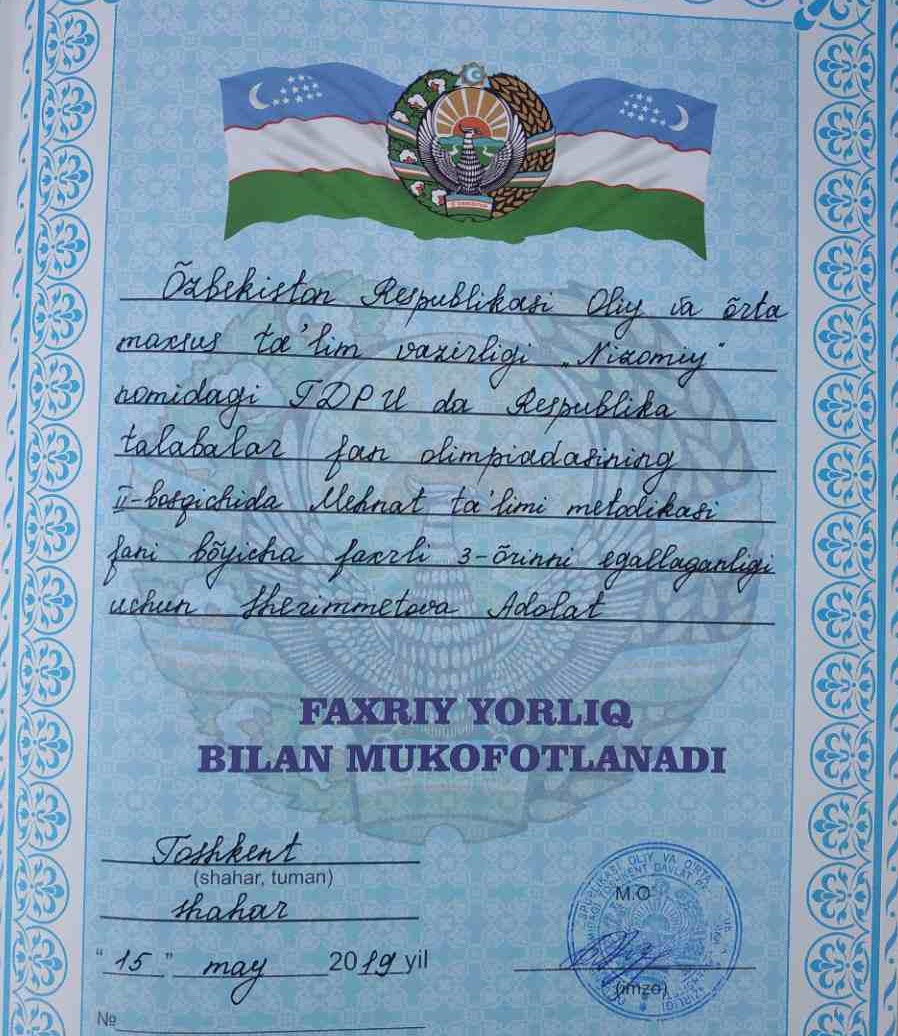 Õzbekiston Respublikasi Oliy va õrta
maxsus ta'lim vazirligi „Nizomiy"
nomidagi TDPU da Respublika
talabalar fan olimpiadasining
II-bosqichida Mehnat ta'limi metodikasi
fani bõyicha faxrli 3-õrinni egallaganligi
uchun Sherimmetova Adolat
FAXRIY YORLIQ
BILAN MUKOFOTLANADI
Toshkent
(shahar, tuman)
shahar
"15" may 2019 yil
M.O
(imzo)
№